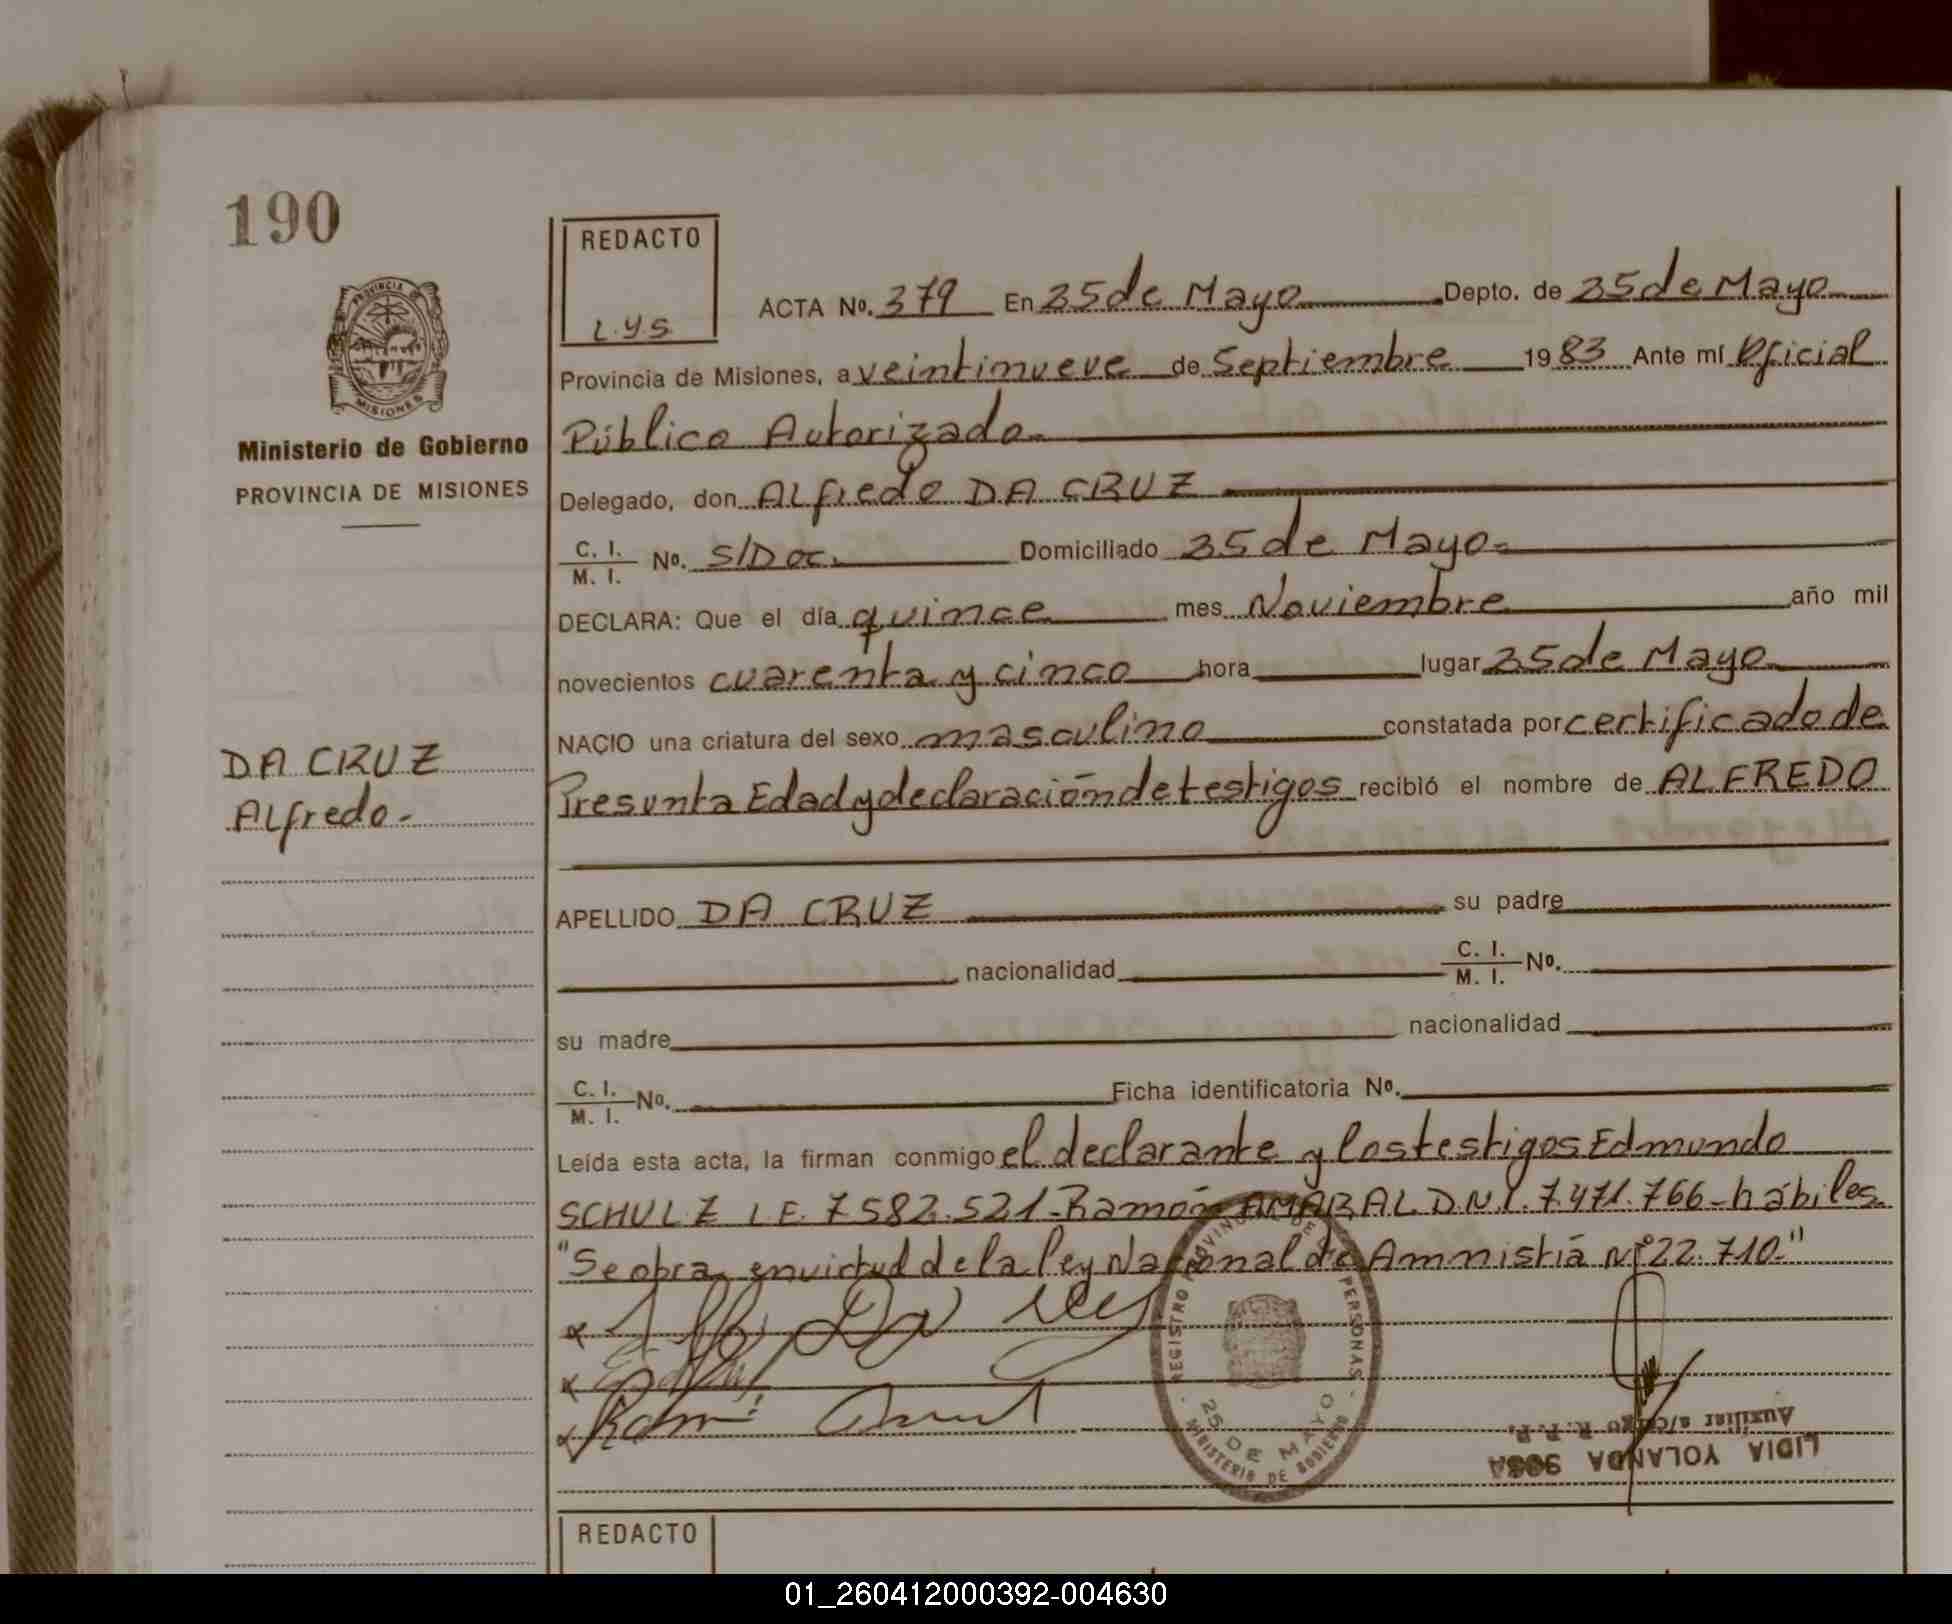 190
REDACTO
L.Y.S.
PROVINCIA DE
MISIONES
Ministerio de Gobierno
PROVINCIA DE MISIONES
ACTA Nº. 379 En 25 de Mayo Depto. de 25 de Mayo
Provincia de Misiones, a veintinueve de Septiembre 1983 Ante mí Oficial
Público Autorizado.
Delegado, don Alfredo DA CRUZ
C. I. / M. I. Nº. S/Doc. Domiciliado 25 de Mayo.
DECLARA: Que el día quince mes Noviembre año mil
novecientos cuarenta y cinco hora lugar 25 de Mayo
NACIO una criatura del sexo masculino constatada por certificado de
Presunta Edad y declaración de testigos recibió el nombre de ALFREDO
DA CRUZ
Alfredo.-
APELLIDO DA CRUZ su padre
nacionalidad C. I. / M. I. Nº.
su madre nacionalidad
C. I. / M. I. Nº. Ficha identificatoria Nº.
Leída esta acta, la firman conmigo el declarante y los testigos Edmundo
SCHULZ L.E. 7582.521-Ramón AMARAL D.N.I. 7.471.766-hábiles.
"Se obra en virtud de la ley Nacional de Amnistía Nº 22.710."
REGISTRO PROVINCIAL DE PERSONAS
25 DE MAYO
MINISTERIO DE GOBIERNO
LIDIA YOLANDA
Auxiliar a/cargo R. P. P.
REDACTO
01_260412000392-004630